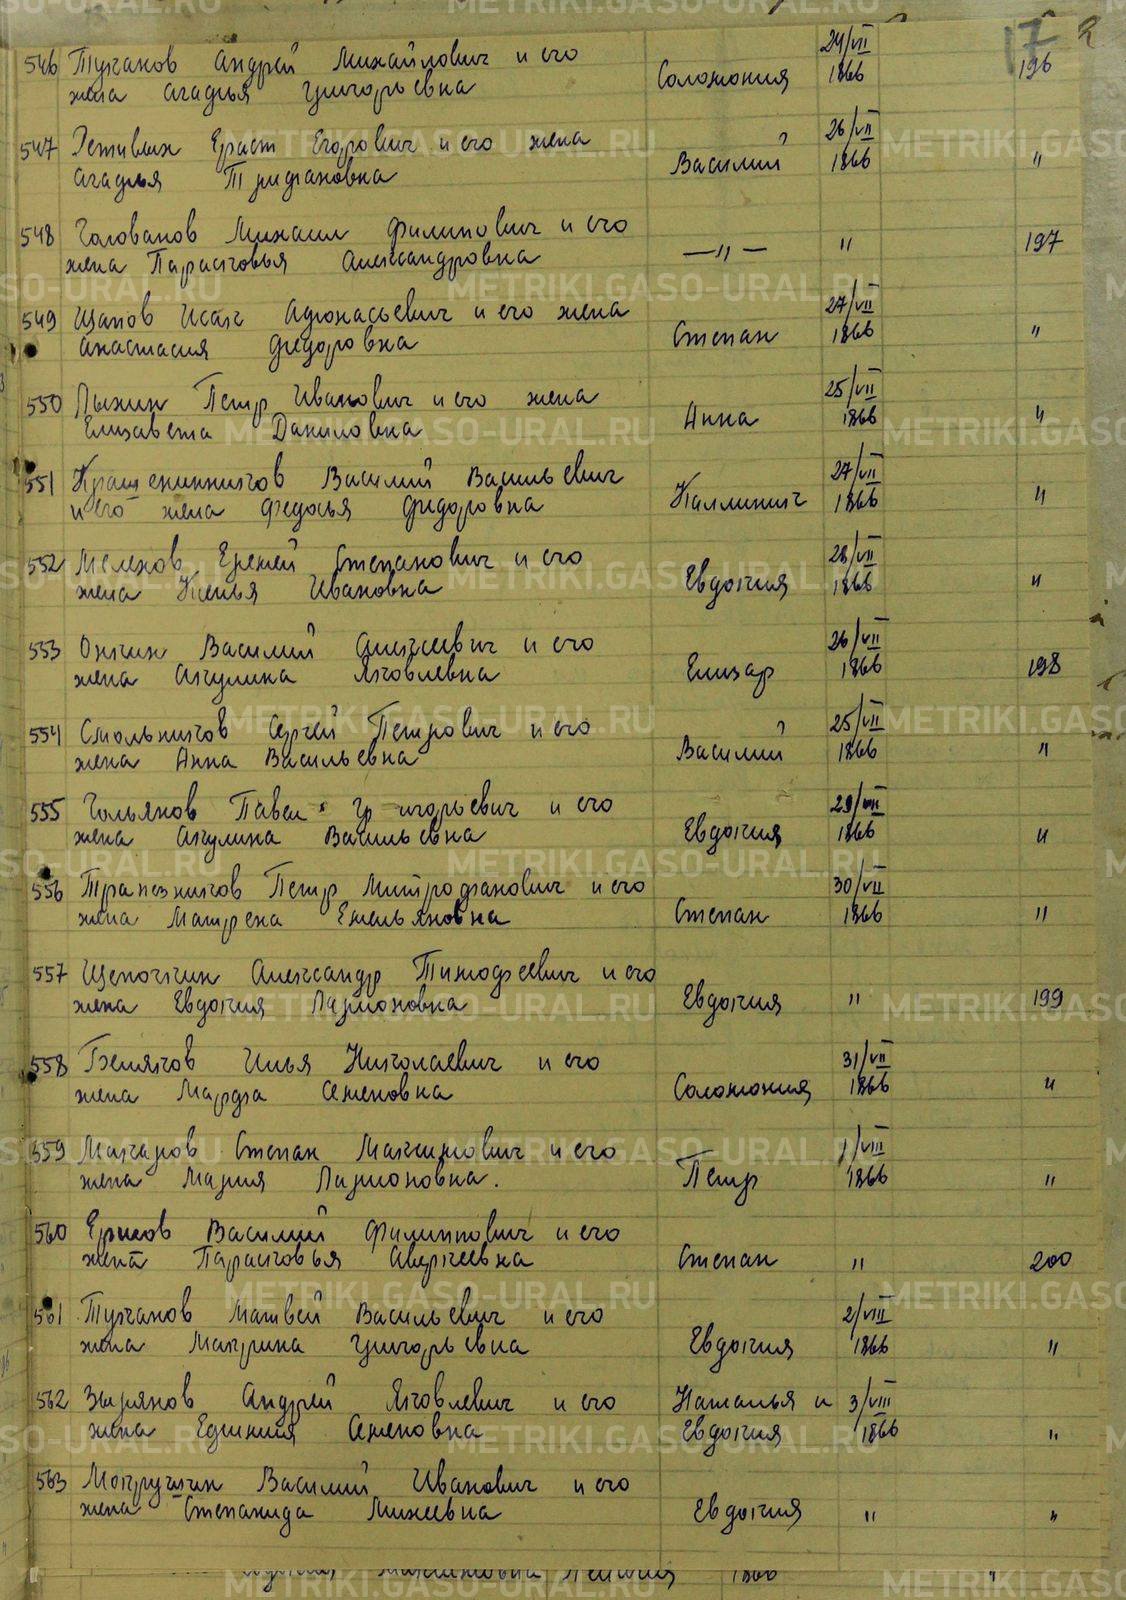 17
546 Тукачов Андрей Михайлович и его Соломония 24/VII 1866 196
жена Агафья Григорьевна
547 Ераст Егорович и его жена Василий 26/VII 1866 "
Агафья Трифановна
548 Голованов Михаил Филипович и его —"— " 197
жена Парасковья Александровна
549 Щапов Исак Афонасьевич и его жена Степан 27/VII 1866 "
Анастасия Федоровна
550 Лыхин Петр Иванович и его жена Анна 25/VII 1866 "
Елизавета Даниловна
551 Крашенинников Василий Васильевич Каллиник 27/VII 1866 "
и его жена Федосья Федоровна
552 Мелехов Еремей Степанович и его Евдокия 28/VII 1866 "
жена Ксенья Ивановна
553 Онькин Василий Алексеевич и его Елизар 26/VII 1866 198
жена Акулина Яковлевна
554 Смольников Сергей Петрович и его Василий 25/VII 1866 "
жена Анна Васильевна
555 Гольянов Павел Григорьевич и его Евдокия 29/VII 1866 "
жена Акулина Васильевна
556 Трапезников Петр Митрофанович и его Степан 30/VII 1866 "
жена Матрена Емельяновна
557 Щепочкин Александр Тимофеевич и его Евдокия " 199
жена Евдокия Ларионовна
558 Беляков Илья Николаевич и его Соломония 31/VII 1866 "
жена Марфа Семеновна
559 Макаров Степан Максимович и его Петр 1/VIII 1866 "
жена Мария Ларионовна.
560 Василий Филиппович и его Степан " 200
жена Парасковья Аверкеевна
561 Тукачов Матвей Васильевич и его Евдокия 2/VIII 1866 "
жена Макрина Григорьевна
562 Зырянов Андрей Яковлевич и его Наталья и 3/VIII
жена Ефимия Семеновна Евдокия 1866 "
563 Мокрушин Василий Иванович и его
жена Степанида Михеевна Евдокия " "
1866 "
METRIKI.GASO-URAL.RU